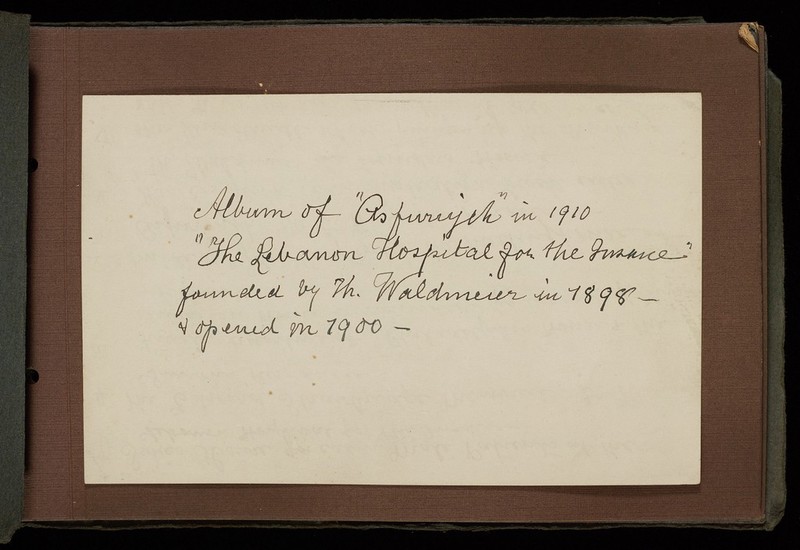 Album of "Asfuriyeh" in 1910
"The Lebanon Hospital for the Insane"
founded by Th. Waldmeier in 1898 —
& opened in 1900 —